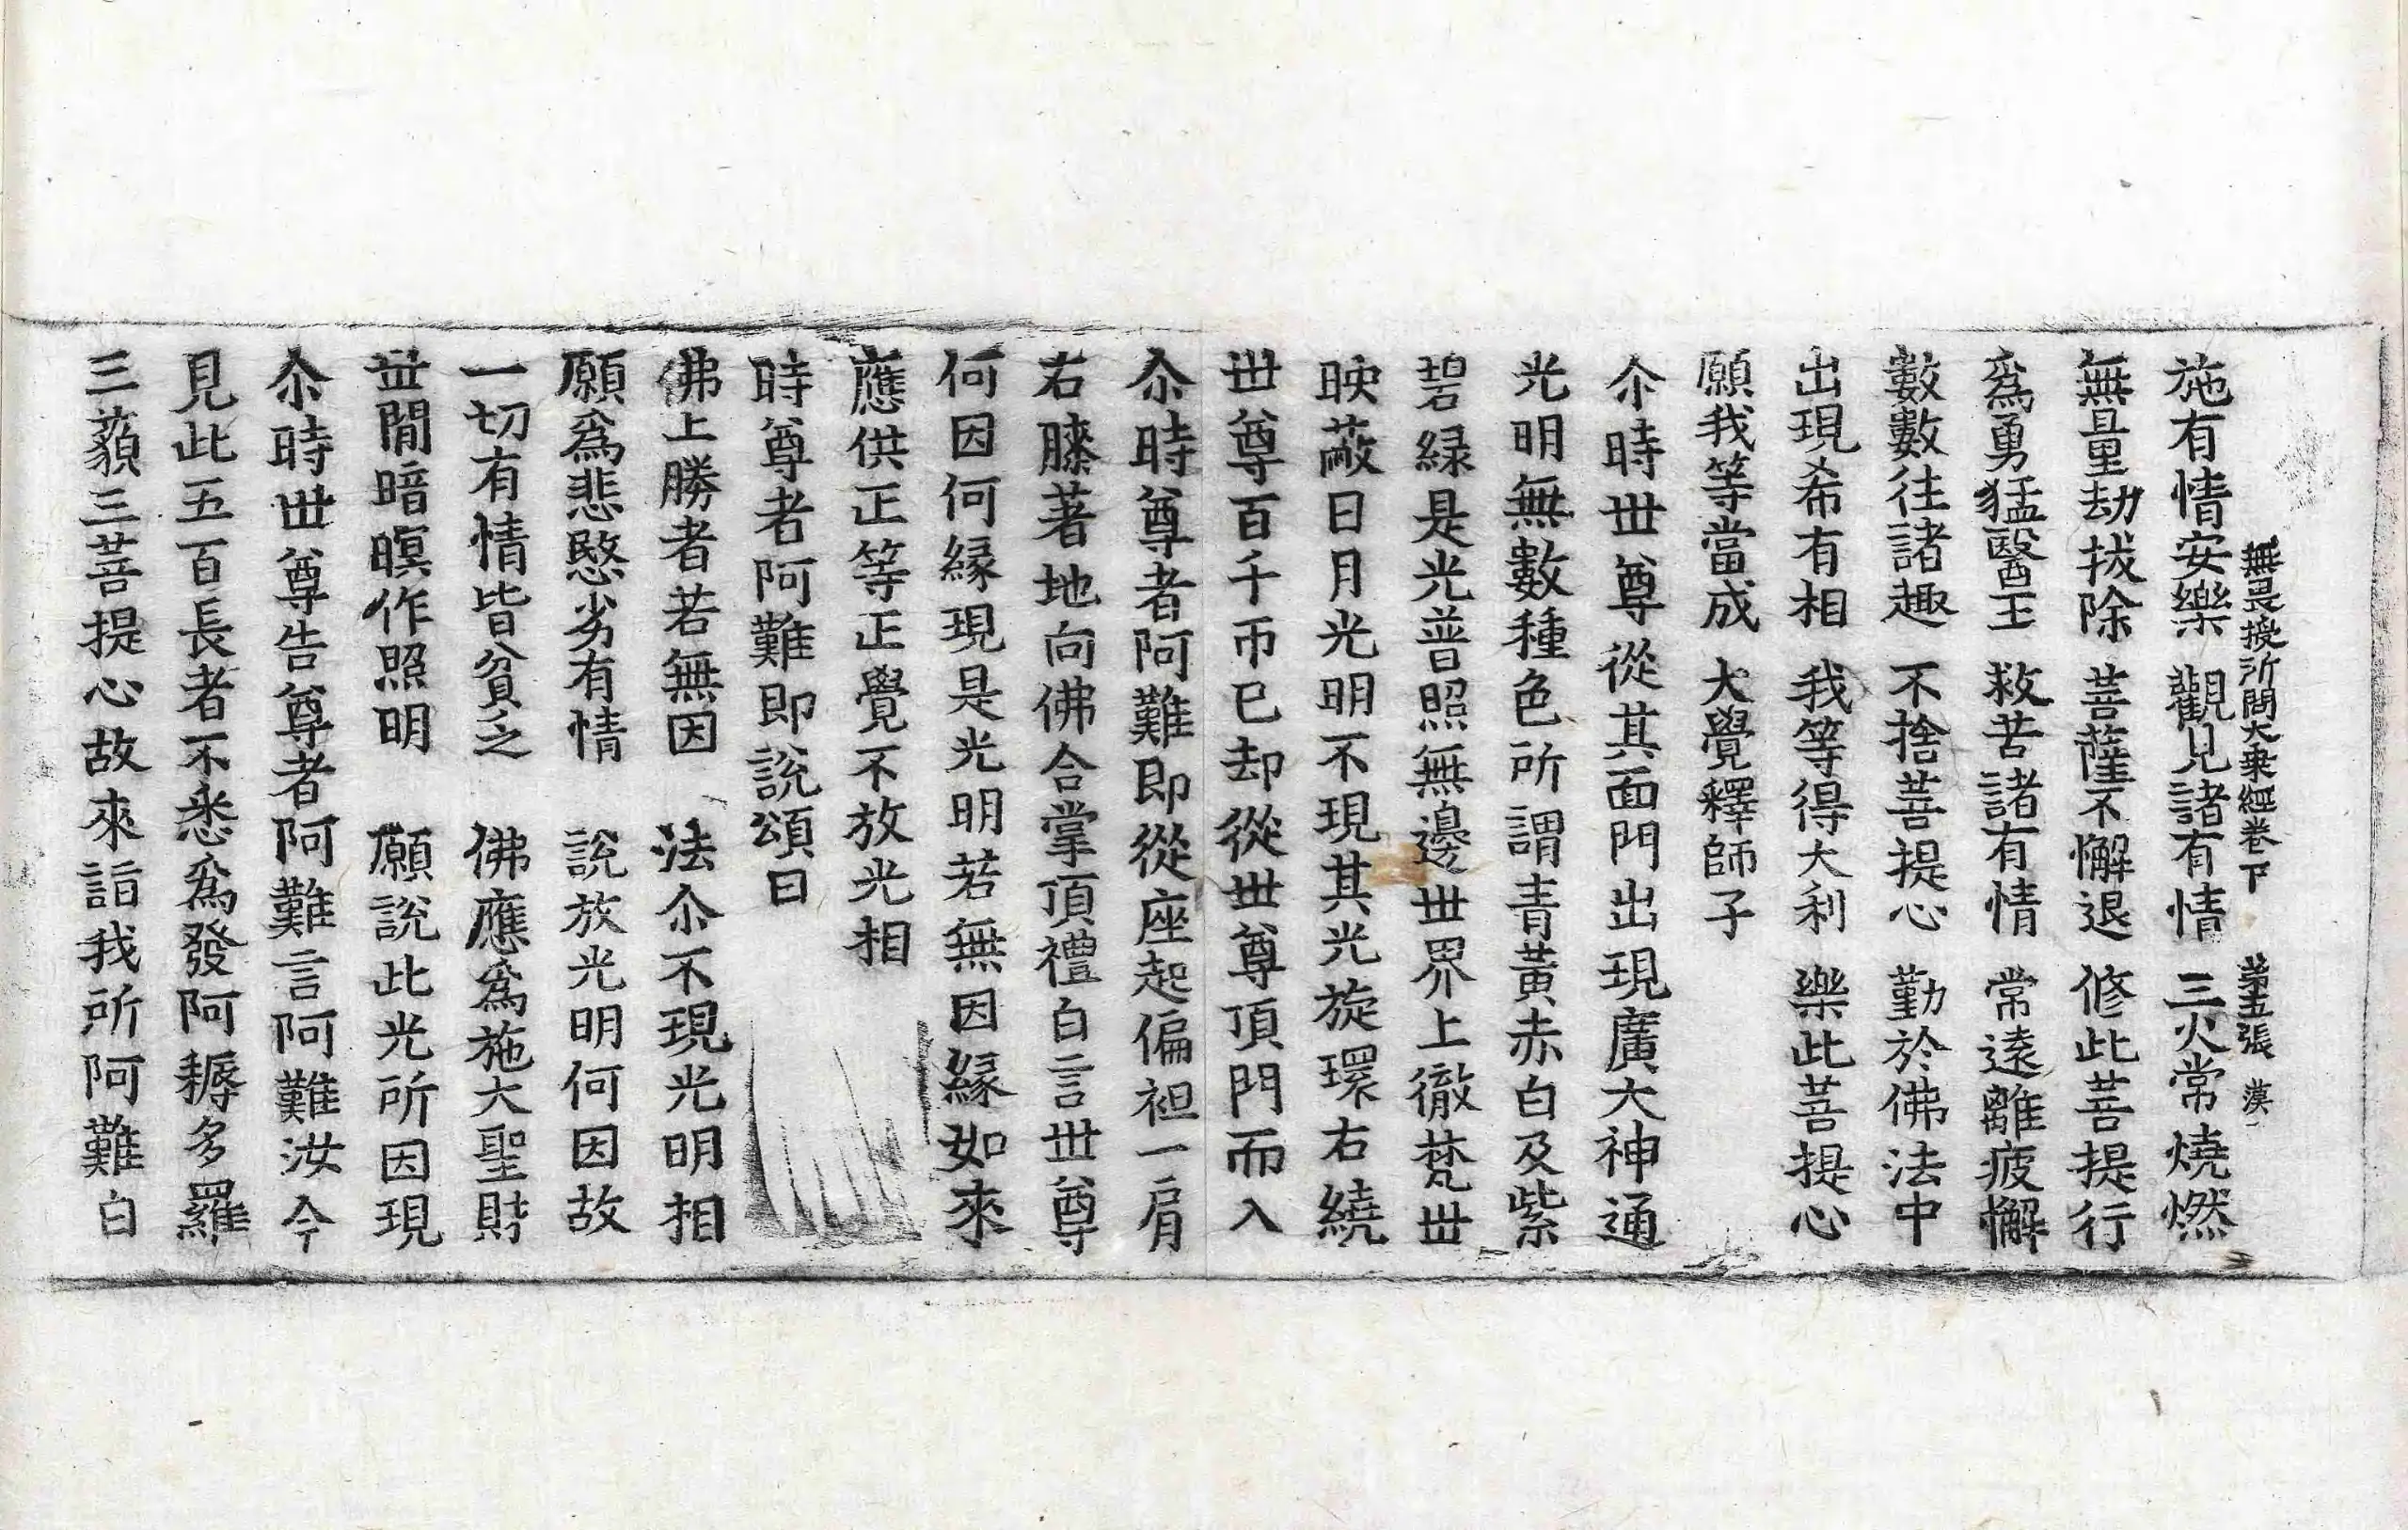 無畏授所問大乘經卷下 第五張 漠
施有情安樂 觀見諸有情 三火常燒燃
無量劫拔除 菩薩不懈退 修此菩提行
爲勇猛醫王 救苦諸有情 常遠離疲懈
數數往諸趣 不捨菩提心 勤於佛法中
出現希有相 我等得大利 樂此菩提心
願我等當成 大覺釋師子
尒時世尊從其面門出現廣大神通
光明無數種色所謂青黃赤白及紫
碧綠是光普照無邊世界上徹梵世
映蔽日月光明不現其光旋環右繞
世尊百千帀已却從世尊頂門而入
尒時尊者阿難即從座起偏袒一肩
右膝著地向佛合掌頂禮白言世尊
何因何緣現是光明若無因緣如來
應供正等正覺不放光相
時尊者阿難即說頌曰
佛上勝者若無因 法尒不現光明相
願爲悲愍劣有情 說放光明何因故
一切有情皆貧乏 佛應爲施大聖財
世閒暗暝作照明 願說此光所因現
尒時世尊告尊者阿難言阿難汝今
見此五百長者不悉爲發阿耨多羅
三藐三菩提心故來詣我所阿難白